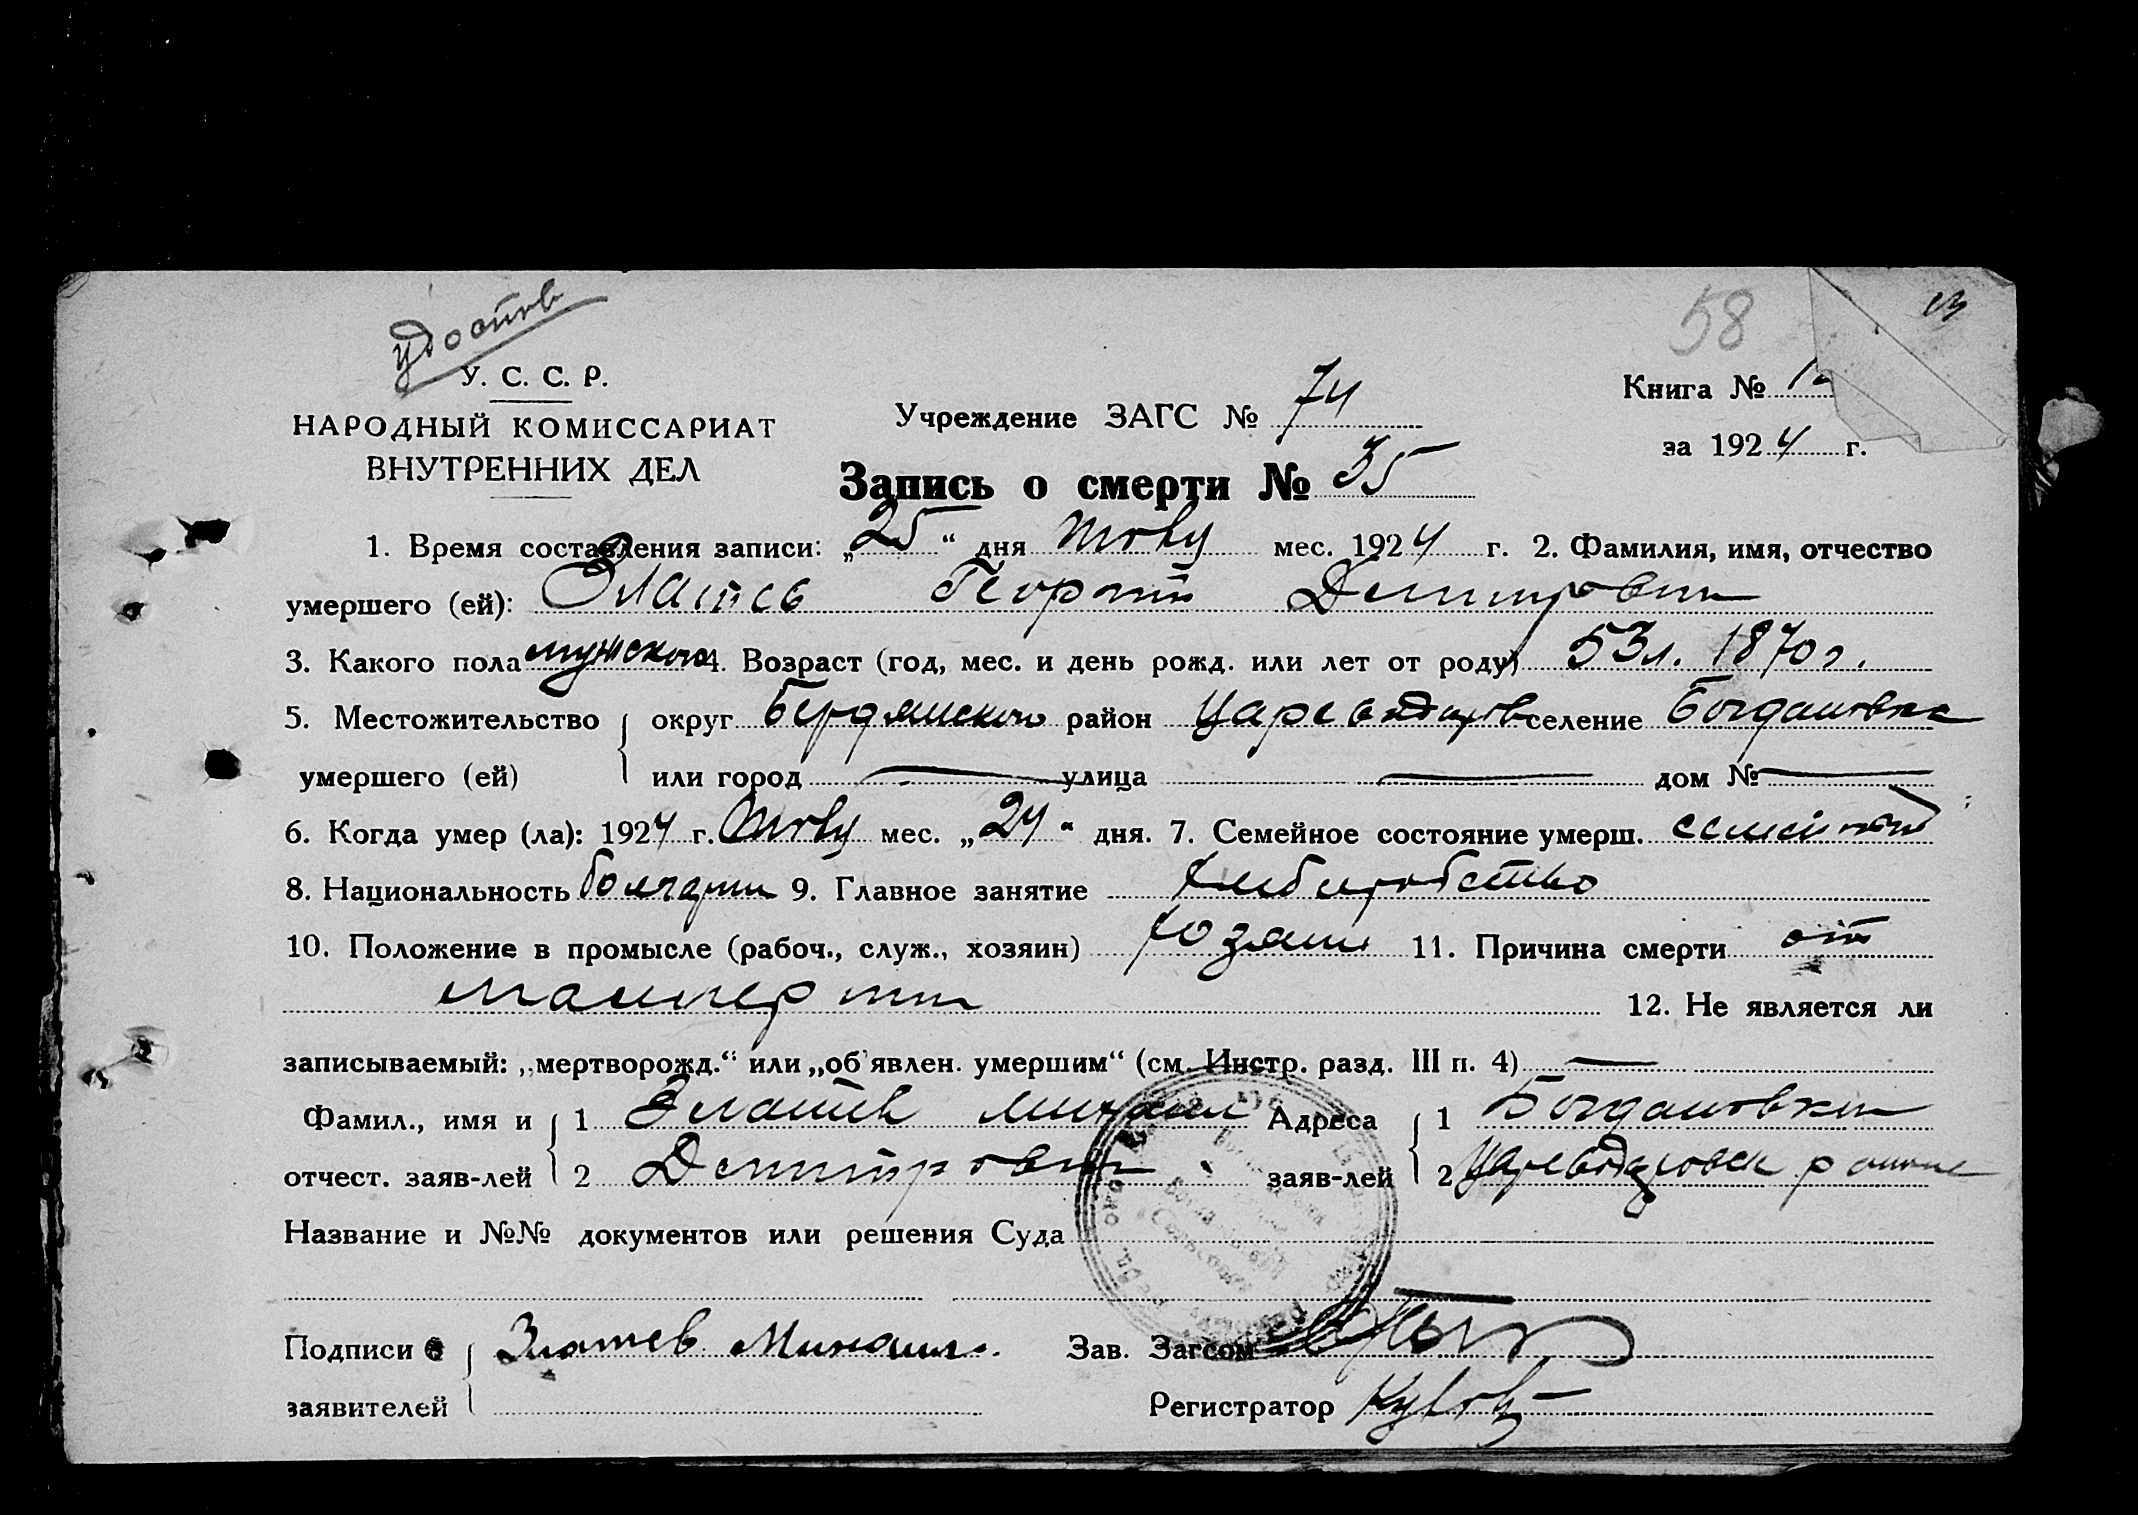 58
У. С. С. Р.
НАРОДНЫЙ КОМИССАРИАТ
ВНУТРЕННИХ ДЕЛ
Учреждение ЗАГС № 74
Книга №
за 1924 г.
Запись о смерти № 35
1. Время составления записи: „25“ дня мес. 1924 г. 2. Фамилия, имя, отчество
умершего (ей): Златев Георгий Дмитрович
3. Какого пола мужского 4. Возраст (год, мес. и день рожд. или лет от роду) 53 л. 1870 г.
5. Местожительство округ Бердянского район селение Богдановка
умершего (ей) или город — улица — дом № —
6. Когда умер (ла): 1924 г. мес. „24“ дня. 7. Семейное состояние умерш. семейный
8. Национальность болгарин 9. Главное занятие хлеборобство
10. Положение в промысле (рабоч., служ., хозяин) хозяин 11. Причина смерти от
12. Не является ли
записываемый: „мертворожд.“ или „об'явлен. умершим“ (см. Инстр. разд. III п. 4) —
Фамил., имя и 1 Златев Михаил Адреса 1 Богдановки
отчест. заяв-лей 2 Дмитрович заяв-лей 2
Название и №№ документов или решения Суда
Подписи Златев Михаил. Зав. Загсом
заявителей Регистратор